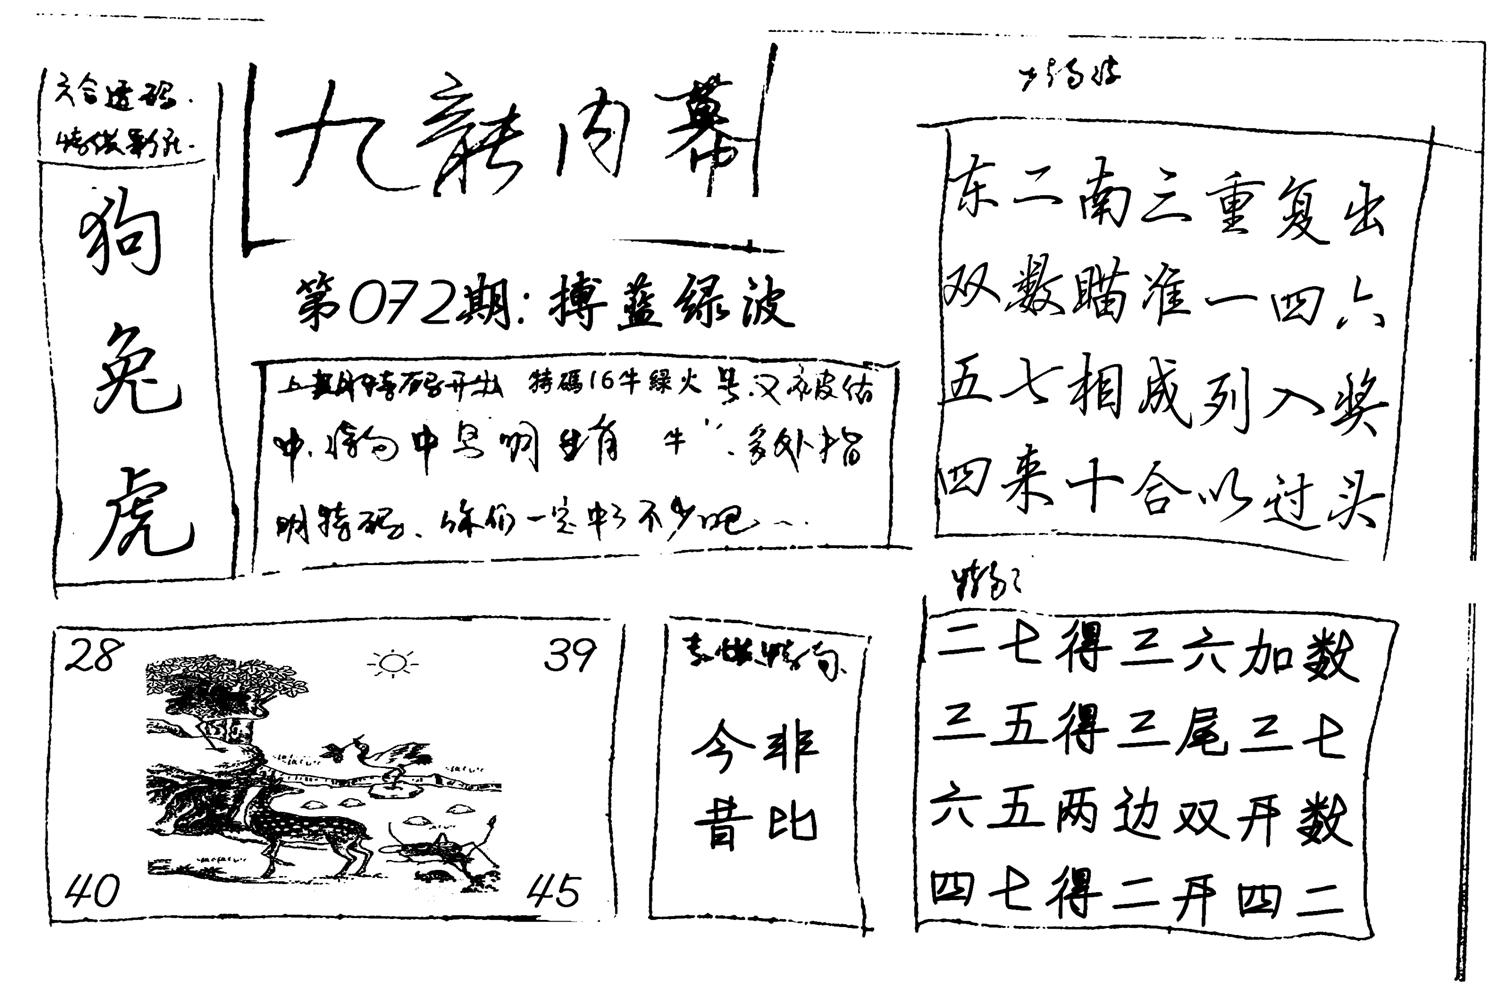 六合透码.
狗
兔
虎
九龍内幕
第072期:搏蓝绿波
上期特码开出 特碼16牛緑火 号.又被估
中.特肖中号明生肖 牛".另外指
明特码、你们一定中了不少吧...
东二南三重复出
双数瞄准一四六
五七相成列入奖
四来十合以过头
28 39
40 45
今非
昔比
二七得三六加数
三五得三尾三七
六五两边双开数
四七得二开四二